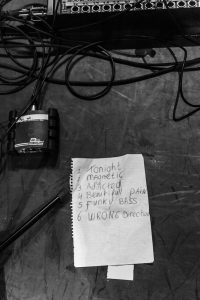 1 Tonight
2 Magnetic
3 Addicted
4 Beautifull
5 Funky BASS
6 WRONG Direction